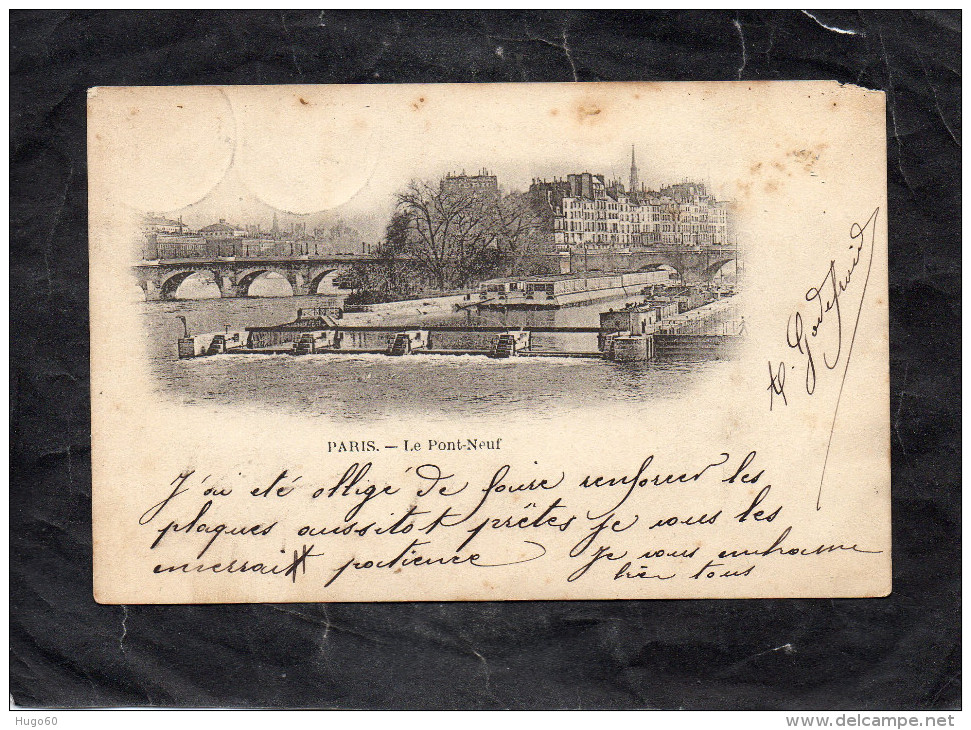 PARIS. — Le Pont-Neuf
A. Godefroid
J'ai eté obligé de faire renforcer les
plaques aussitot prêtes je vous les
enverrai patience Je vous embrasse
bien tous
Hugo60
www.delcampe.net